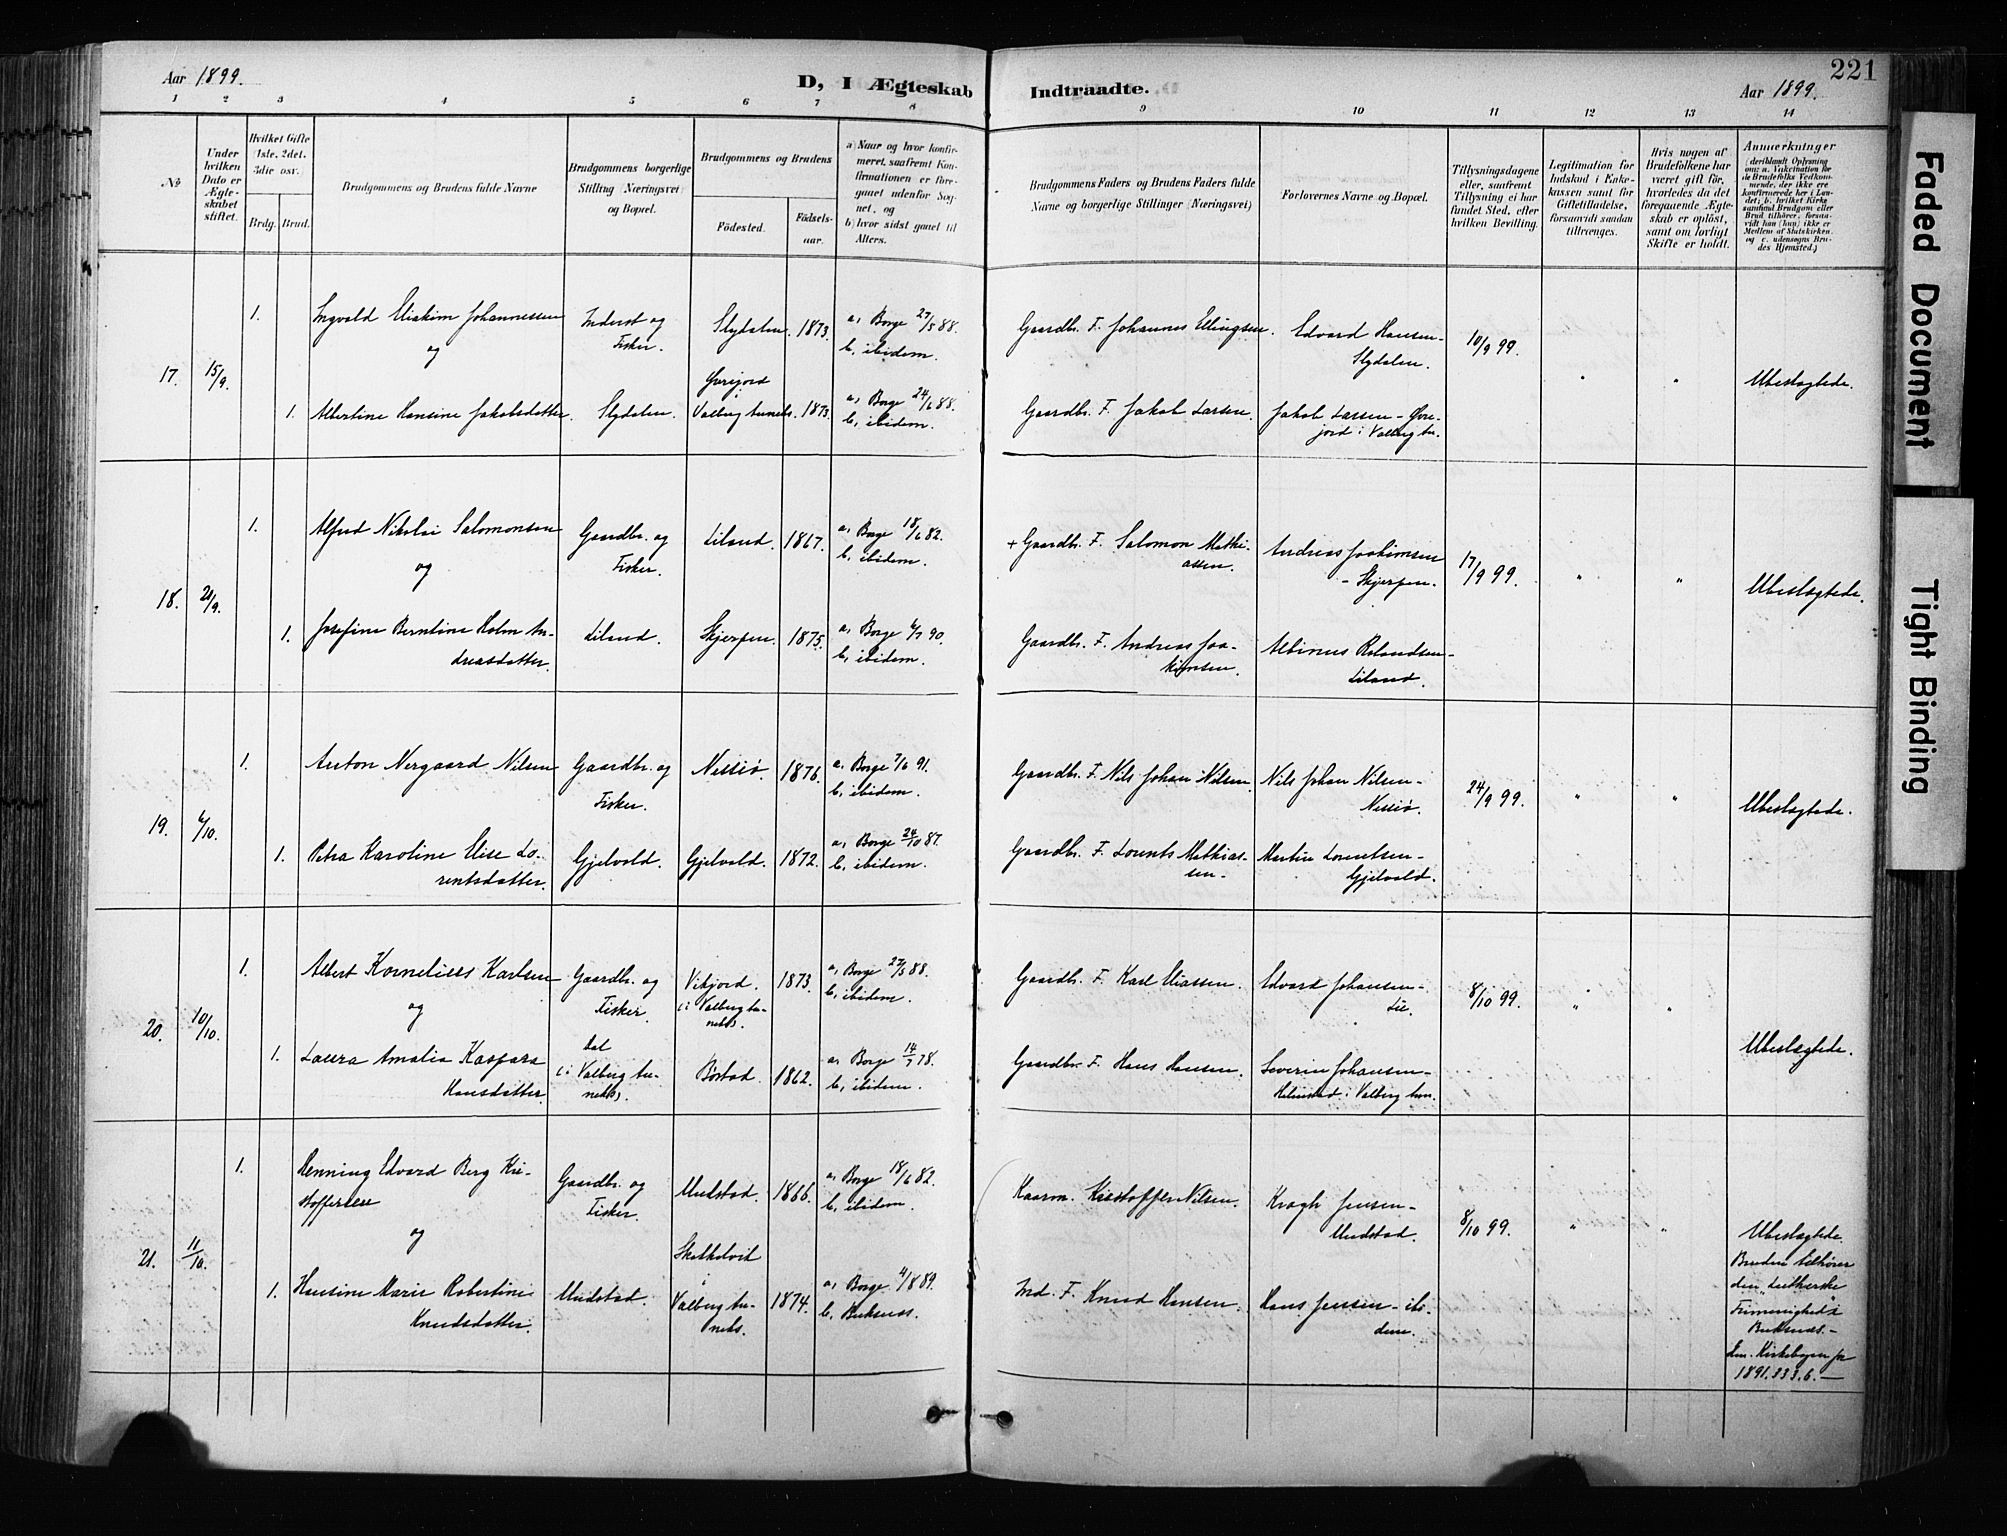 221
Aar 1899.
D, I Ægteskab
Indtraadte.
Aar 1899.
1 2 3 4 5 6 7 8 9 10 11 12 13 14
No
Under hvilken Dato er Ægteskabet stiftet.
Hvilket Gifte (1ste, 2det, 3die osv.
Brdg. Brud.
Brudgommens og Brudens fulde Navne
Brudgommens borgerlige Stilling (Næringsvei) og Bopæl.
Brudgommens og Brudens
Födested.
Födsels-aar.
a) Naar og hvor konfirmeret, saafremt Konfirmationen er foregaaet udenfor Sognet, og
b) hvor sidst gaaet til Alters.
Brudgommens Faders og Brudens Faders fulde Navne og borgerlige Stillinger (Næringsvei)
Forlovernes Navne og Bopæl.
Tillysningsdagene eller, saafremt Tillysning ei har fundet Sted, efter hvilken Bevilling.
Legitimation for Indskud i Enkekassen samt for Giftetilladelse, forsaavidt saadan tiltrænges.
Hvis nogen af Brudefolkene har været gift för, hvorledes da det foregaaende Ægteskab er oplöst, samt om lovligt Skifte er holdt.
Anmærkninger
17. 15/9. 1. Ingvald Eliakim Johannessen
og
Inderst og Fisker.
Slydalen. 1873.
a, Borge 27/5 88.
b, ibidem.
Gaardbr. F. Johannes Ellingsen.
Edvard Hansen - Slydalen.
10/9 99.
Ubeslægtede.
1. Albertine Hansine Jakobsdatter.
Slydalen.
Valberg anneks. 1873.
a, Borge 24/6 88.
b, ibidem.
Gaardbr. F. Jakob Larsen.
Jakob Larsen -
jord i Valberg an.
18. 21/9. 1. Alfred Nikolai Salomonsen
og
Gaardbr. og Fisker.
Liland. 1867.
a, Borge 18/6 82.
b, ibidem.
+ Gaardbr. F. Salomon Mathiassen.
Andreas Joakimsen - Skjerpen.
17/9 99.
Ubeslægtede.
1. Josefine Berntine Holm Andreasdatter.
Liland.
Skjerpen. 1875.
a, Borge 6/7 90.
b, ibidem.
Gaardbr. F. Andreas Joakimsen.
Albinus Rolandsen - Liland.
19. 6/10. 1. Anton Nergaard Nilsen
Gaardbr. og Fisker.
1876.
a, Borge 7/6 91.
b, ibidem.
Gaardbr. F. Nils Johan Nilsen.
Nils Johan Nilsen -
24/9 99.
Ubeslægtede.
1. Petra Karoline Elise Lorentsdatter.
Gjelvold.
Gjelvold. 1872.
a, Borge 24/10 87.
b, ibidem.
Gaardbr. F. Lorents Mathiassen.
Martin Lorentsen - Gjelvold.
20. 10/10. 1. Albert Kornelius Karlsen
og
Gaardbr. og Fisker.
Vikjord.
(i Valberg anneks). 1873.
a, Borge 27/5 88.
b, ibidem.
Gaardbr. F. Karl Eliassen.
Edvard Johansen - Lie.
8/10 99.
Ubeslægtede.
1. Laura Amalia Kaspara Hansdatter.
Dal
(i Valberg anneks).
Børstad. 1862.
a, Borge 14/7 78.
b, ibidem.
Gaardbr. F. Hans Hansen.
Severin Johansen -
i Valberg ann.
21. 11/10. 1. Henning Edvard Berg Kristoffersen
og
Gaardbr. og Fisker.
Mudstad. 1866.
a, Borge 18/6 82.
b, ibidem.
Kaarm. Kristoffer Nilsen.
Kragh Jensen - Mudstad.
8/10 99.
Ubeslægtede.
Bruden tilhører den "Lutherske Frimenighed" i Buksnæs. -
Kirkebogen for 1891.333.6. -
1. Hansine Marie Robertine Knudsdatter.
Mudstad.
i
Valberg anneks. 1874.
a, Borge 4/8 89.
b, Buksnæs.
Ind. F. Knud Hansen.
Hans Jensen - ibidem.
Faded Document
Tight Binding